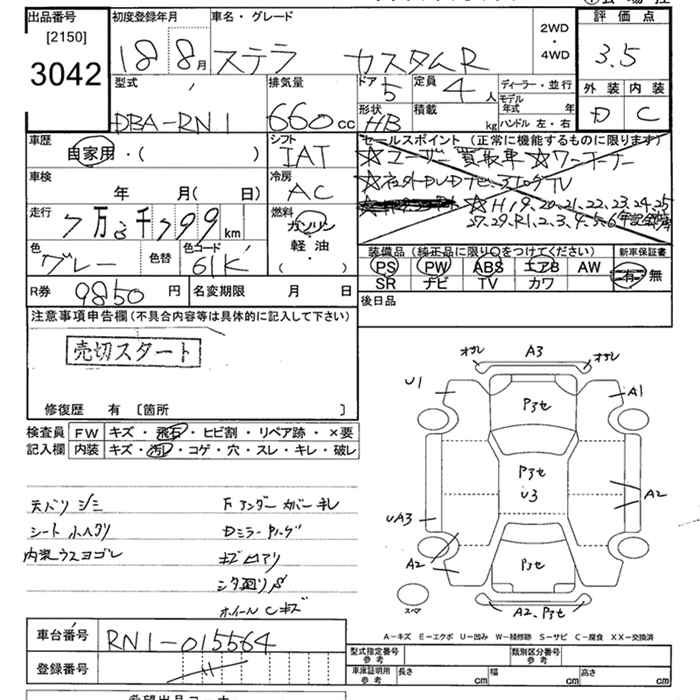 出品番号 初度登録年月 車名・グレード 評価点
[2150] 3042 18年 8月 ステラ カスタムR 2WD・4WD 3.5
外装 内装
D C
型式 排気量 ドア 定員 ディーラー・並行
DBA-RN1 660cc 5 4人 モデル年式 年
形状 積載 ハンドル 左・右
HB kg
車歴 シフト セールスポイント (正常に機能するものに限ります)
自家用・( ) IAT ☆ユーザー買取車 ☆ワーナー
車検 冷房
年 月( 日) AC
☆H19.20.21.22.23.24.25
走行 燃料 27.29.R1.2.3.4.5.6年記録簿
7万3千799km ガソリン
軽油
( ・ )
色 色替 色コード 装備品 (純正品に限り○をつけてください) 新車保証書
グレー 61K PS PW ABS エアB AW 有・無
SR ナビ TV カワ
R券 9850円 名変期限 月 日 後日品
注意事項申告欄 (不具合内容等は具体的に記入して下さい)
売切スタート
修復歴 有 [箇所 ]
検査員 FW キズ・飛石・ヒビ割・リペア跡・×要
記入欄 内装 キズ・汚レ・コゲ・穴・スレ・キレ・破レ
オサレ A3 オサレ
U1 A1
P3セ
P3セ
U3
A2
UA3
A2
P3セ
スペア
A2、P3セ
天バリ シミ
Fアンダーカバーキレ
シート
Dミラー
内装ウスヨゴレ
シタ廻りS
ホイールCキズ
A-キズ E-エクボ U-凹み W-補修跡 S-サビ C-腐食 XX-交換済
車台番号 RN1-015564
登録番号
型式指定番号 参考 類別区分番号 参考
車庫証明用 参考 長さ cm 幅 cm 高さ cm